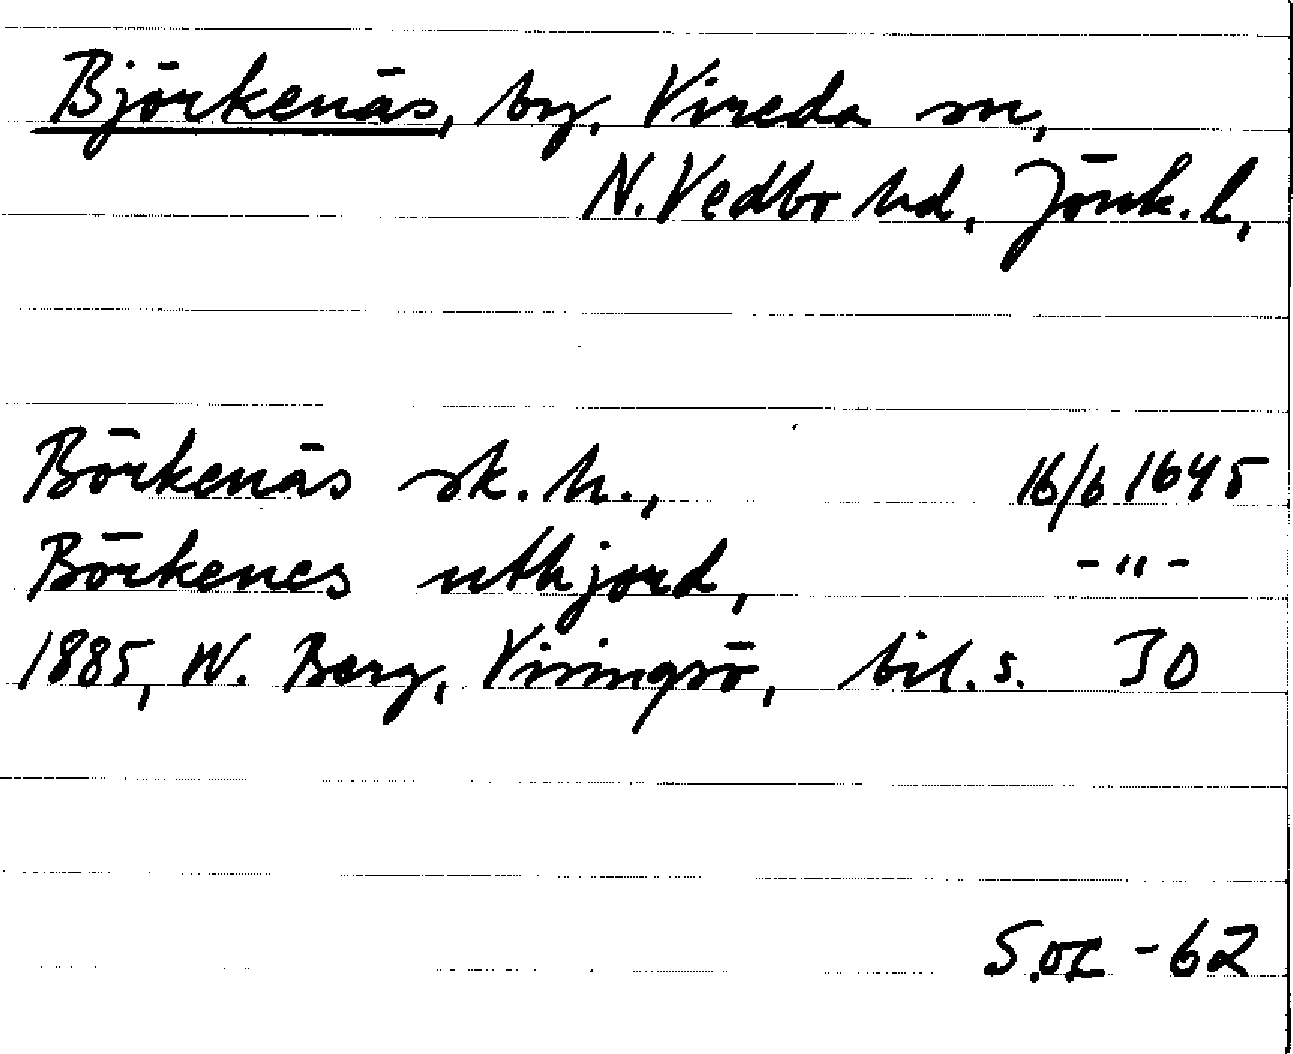 Björkenäs, by, Vireda sn,
N. Vedbo hd, Jönk. l,
Börkenäs sk. h., 16/6 1645
Börkenes uthjord, -"-
1885, W. Berg, Visingsö, bil. s. 30
S.oL -62